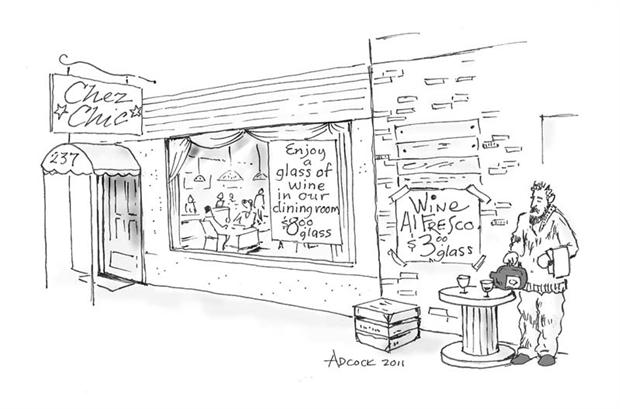 Chez
Chic
237
Enjoy
a
glass of
wine
in our
dining room
$8.00
glass
Wine
Al Fresco
$3.00
glass
ADCOCK 2011